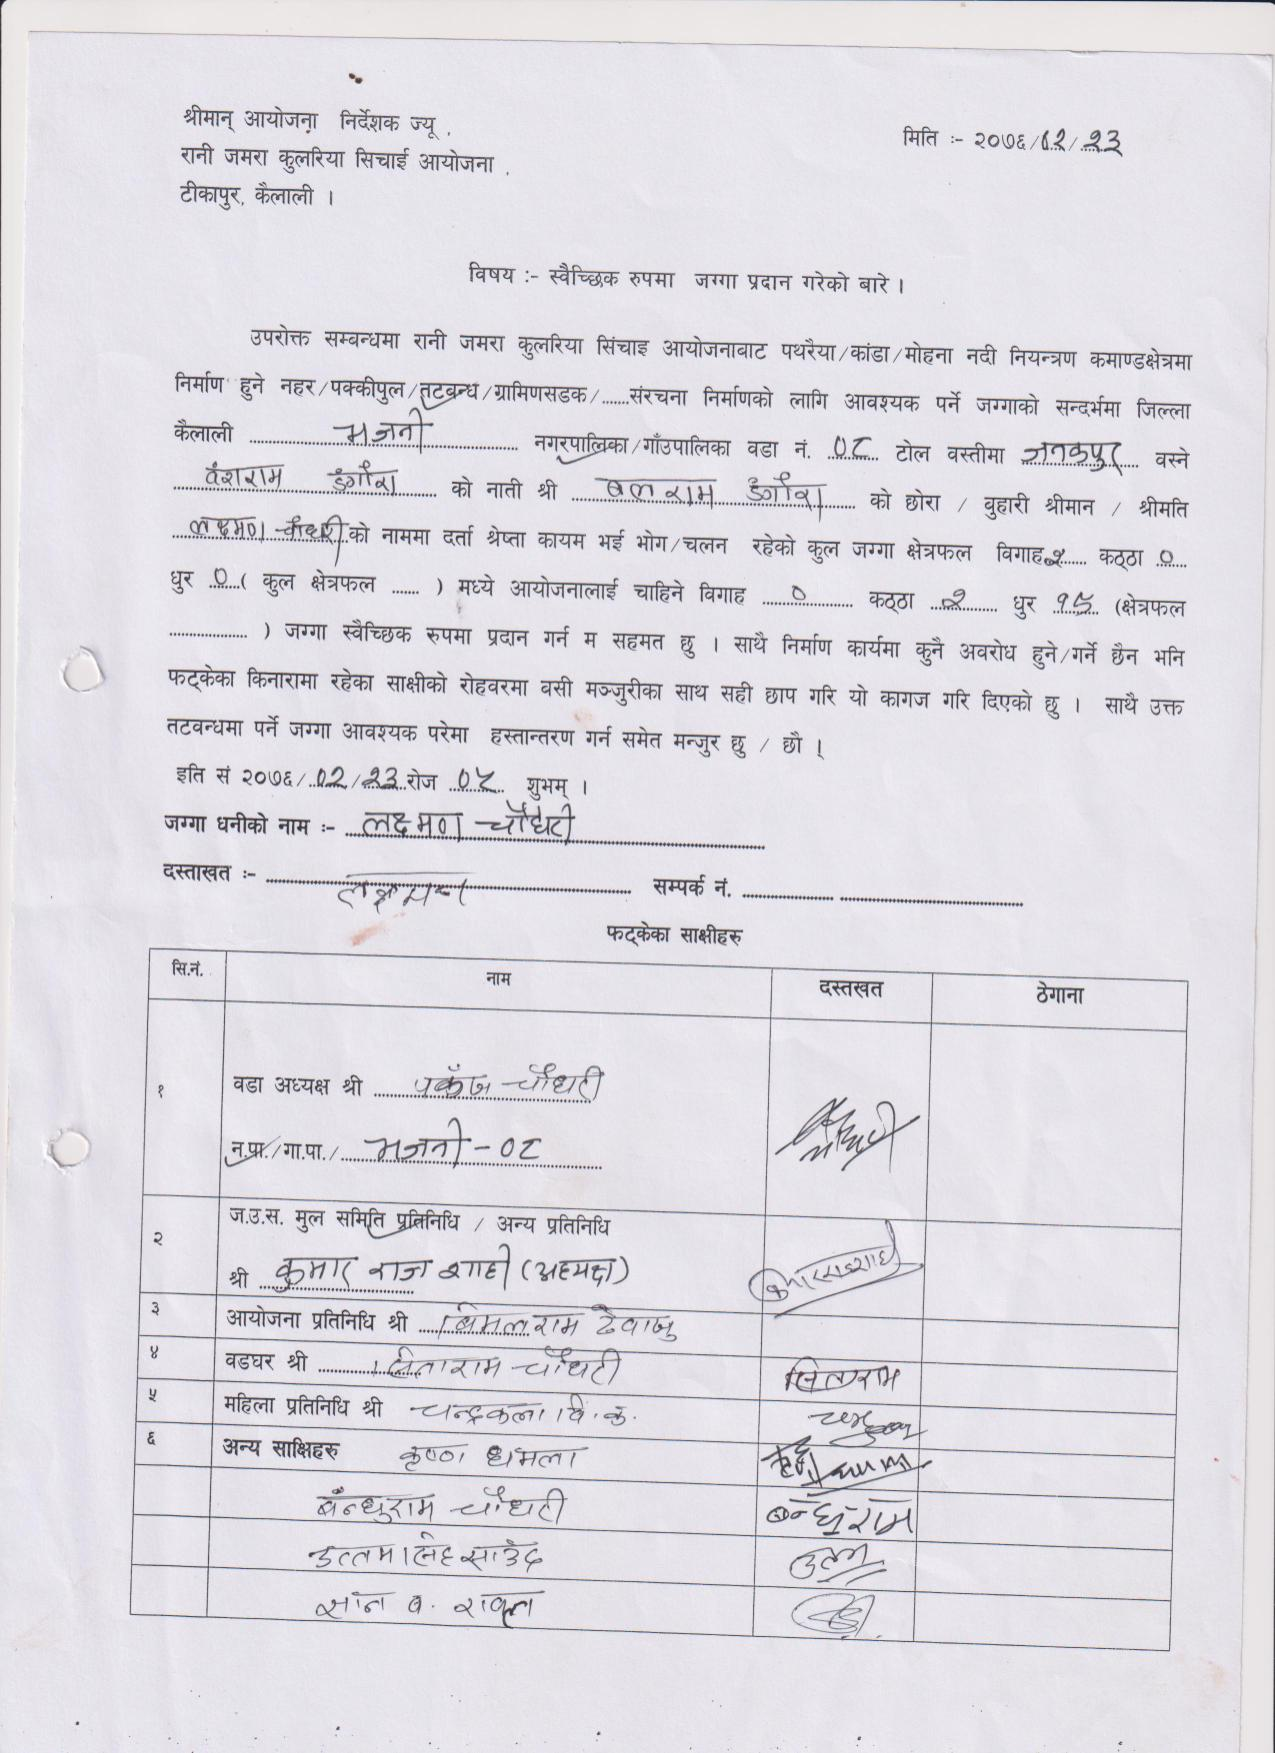 श्रीमान् आयोजना निर्देशक ज्यू ,
मिति :- २०७६/०२/२३
रानी जमरा कुलरिया सिचाई आयोजना ,
टीकापुर, कैलाली ।
विषय :- स्वैच्छिक रुपमा जग्गा प्रदान गरेको बारे ।
उपरोक्त सम्बन्धमा रानी जमरा कुलरिया सिंचाइ आयोजनाबाट पथरैया/कांडा/मोहना नदी नियन्त्रण कमाण्डक्षेत्रमा
निर्माण हुने नहर/पक्कीपुल/तटबन्ध/ग्रामिणसडक/.......संरचना निर्माणको लागि आवश्यक पर्ने जग्गाको सन्दर्भमा जिल्ला
कैलाली भजनी नगरपालिका/गाँउपालिका वडा नं. ०८ टोल वस्तीमा जनकपुर वस्ने
वंशराम डगौरा को नाती श्री बलराम डगौरा को छोरा / बुहारी श्रीमान / श्रीमति
लक्ष्मण चौधरी को नाममा दर्ता श्रेष्ता कायम भई भोग/चलन रहेको कुल जग्गा क्षेत्रफल विगाह २ कठ्ठा ०
धुर ० ( कुल क्षेत्रफल ....... ) मध्ये आयोजनालाई चाहिने विगाह ० कठ्ठा २ धुर १५ (क्षेत्रफल
.................... ) जग्गा स्वैच्छिक रुपमा प्रदान गर्न म सहमत छु । साथै निर्माण कार्यमा कुनै अवरोध हुने/गर्ने छैन भनि
फट्केका किनारामा रहेका साक्षीको रोहवरमा वसी मञ्जुरीका साथ सही छाप गरि यो कागज गरि दिएको छु । साथै उक्त
तटवन्धमा पर्ने जग्गा आवश्यक परेमा हस्तान्तरण गर्न समेत मन्जुर छु / छौ ।
इति सं २०७६/०२/२३ रोज ०५ शुभम् ।
जग्गा धनीको नाम :- लक्ष्मण चौधरी
दस्ताखत :- लक्ष्मण सम्पर्क नं. ....................
फट्केका साक्षीहरु
सि.नं. नाम दस्तखत ठेगाना
१ वडा अध्यक्ष श्री पकँज चौधरी
न.पा./गा.पा./ भजनी - ०८
२ ज.उ.स. मुल समिति प्रतिनिधि / अन्य प्रतिनिधि
श्री कुमार राज शाही (अध्यक्ष)
३ आयोजना प्रतिनिधि श्री विमलराम देवाजु
४ वडघर श्री सिताराम चौधरी सिताराम
५ महिला प्रतिनिधि श्री चन्द्रकला वि.क.
६ अन्य साक्षिहरु कृष्ण धमला
बन्धुराम चौधरी बन्धुराम
उत्तम सिंह साउँद
सान ब. रावल